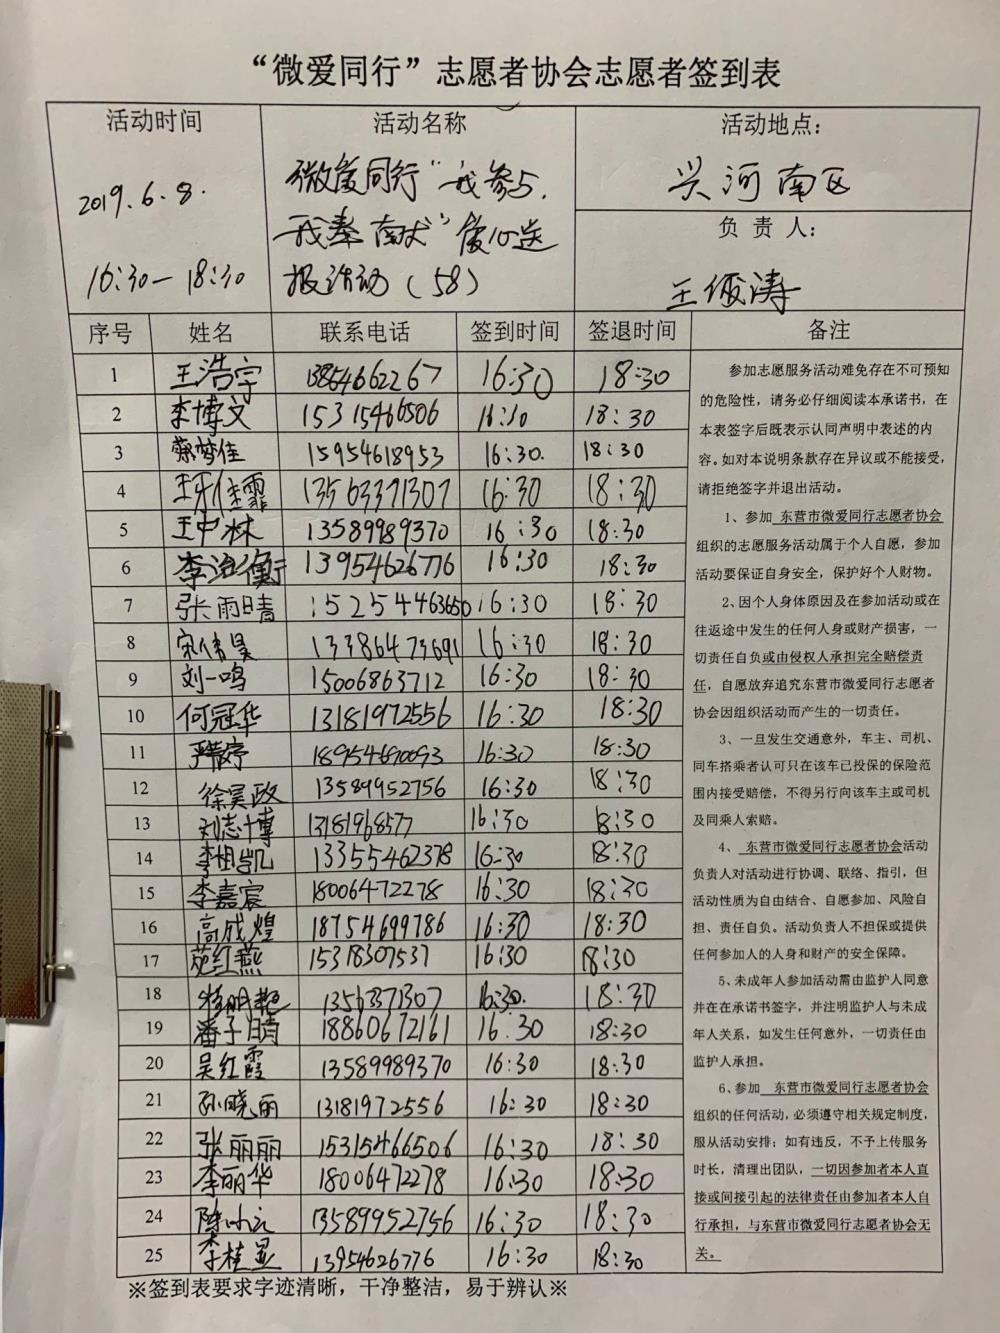 “微爱同行”志愿者协会志愿者签到表
活动时间
2019.6.8.
16:30-18:30
活动名称
微爱同行“我参与,
我奉献”爱心送
报活动(58)
活动地点:
兴河南区
负责人:
王
涛
序号 姓名 联系电话 签到时间 签退时间 备注
1 王浩宇 13864662267 16:30 18:30
2 李博文 15315466506 16:30 18:30
3 蔡梦佳 15954618953 16:30. 18:30
4 13563371307 16:30 18:30
5 王中林 13589989370 16:30 18:30
6 李 衡 13954626776 16:30 18:30
7 张雨晴 15254463650 16:30 18:30
8 宋 昊 13386473691 16:30 18:30
9 刘一鸣 15006863712 16:30 18:30
10 何冠华 13181972556 16:30 18:30
11 严 16:30 18:30
12 徐昊政 13589952756 16:30 18:30
13 刘志博 13181968577 16:30 18:30
14 李 凯 13355462378 16:30 18:30
15 李嘉宸 18006472278 16:30 18:30
16 高成煌 18754699786 16:30 18:30
17 苑红燕 15318307537 16:30 18:30
18 13563371307 16:30. 18:30
19 潘子晴 18860672161 16:30 18:30
20 吴红霞 13589989370 16:30 18:30
21 孙晓丽 13181972556 16:30 18:30
22 张丽丽 15315466506 16:30 18:30
23 李丽华 18006472278 16:30 18:30
24 陈 13589952756 16:30 18:30
25 李桂 13954626776 16:30 18:30
参加志愿服务活动难免存在不可预知
的危险性，请务必仔细阅读本承诺书，在
本表签字后既表示认同声明中表述的内
容。如对本说明条款存在异议或不能接受，
请拒绝签字并退出活动。
1、参加 东营市微爱同行志愿者协会
组织的志愿服务活动属于个人自愿，参加
活动要保证自身安全，保护好个人财物。
2、因个人身体原因及在参加活动或在
往返途中发生的任何人身或财产损害，一
切责任自负或由侵权人承担完全赔偿责
任，自愿放弃追究东营市微爱同行志愿者
协会因组织活动而产生的一切责任。
3、一旦发生交通意外，车主、司机、
同车搭乘者认可只在该车已投保的保险范
围内接受赔偿，不得另行向该车主或司机
及同乘人索赔。
4、 东营市微爱同行志愿者协会活动
负责人对活动进行协调、联络、指引，但
活动性质为自由结合、自愿参加、风险自
担、责任自负。活动负责人不担保或提供
任何参加人的人身和财产的安全保障。
5、未成年人参加活动需由监护人同意
并在在承诺书签字，并注明监护人与未成
年人关系，如发生任何意外，一切责任由
监护人承担。
6、参加 东营市微爱同行志愿者协会
组织的任何活动，必须遵守相关规定制度，
服从活动安排；如有违反，不予上传服务
时长，清理出团队，一切因参加者本人直
接或间接引起的法律责任由参加者本人自
行承担，与东营市微爱同行志愿者协会无
关。
※签到表要求字迹清晰，干净整洁，易于辨认※